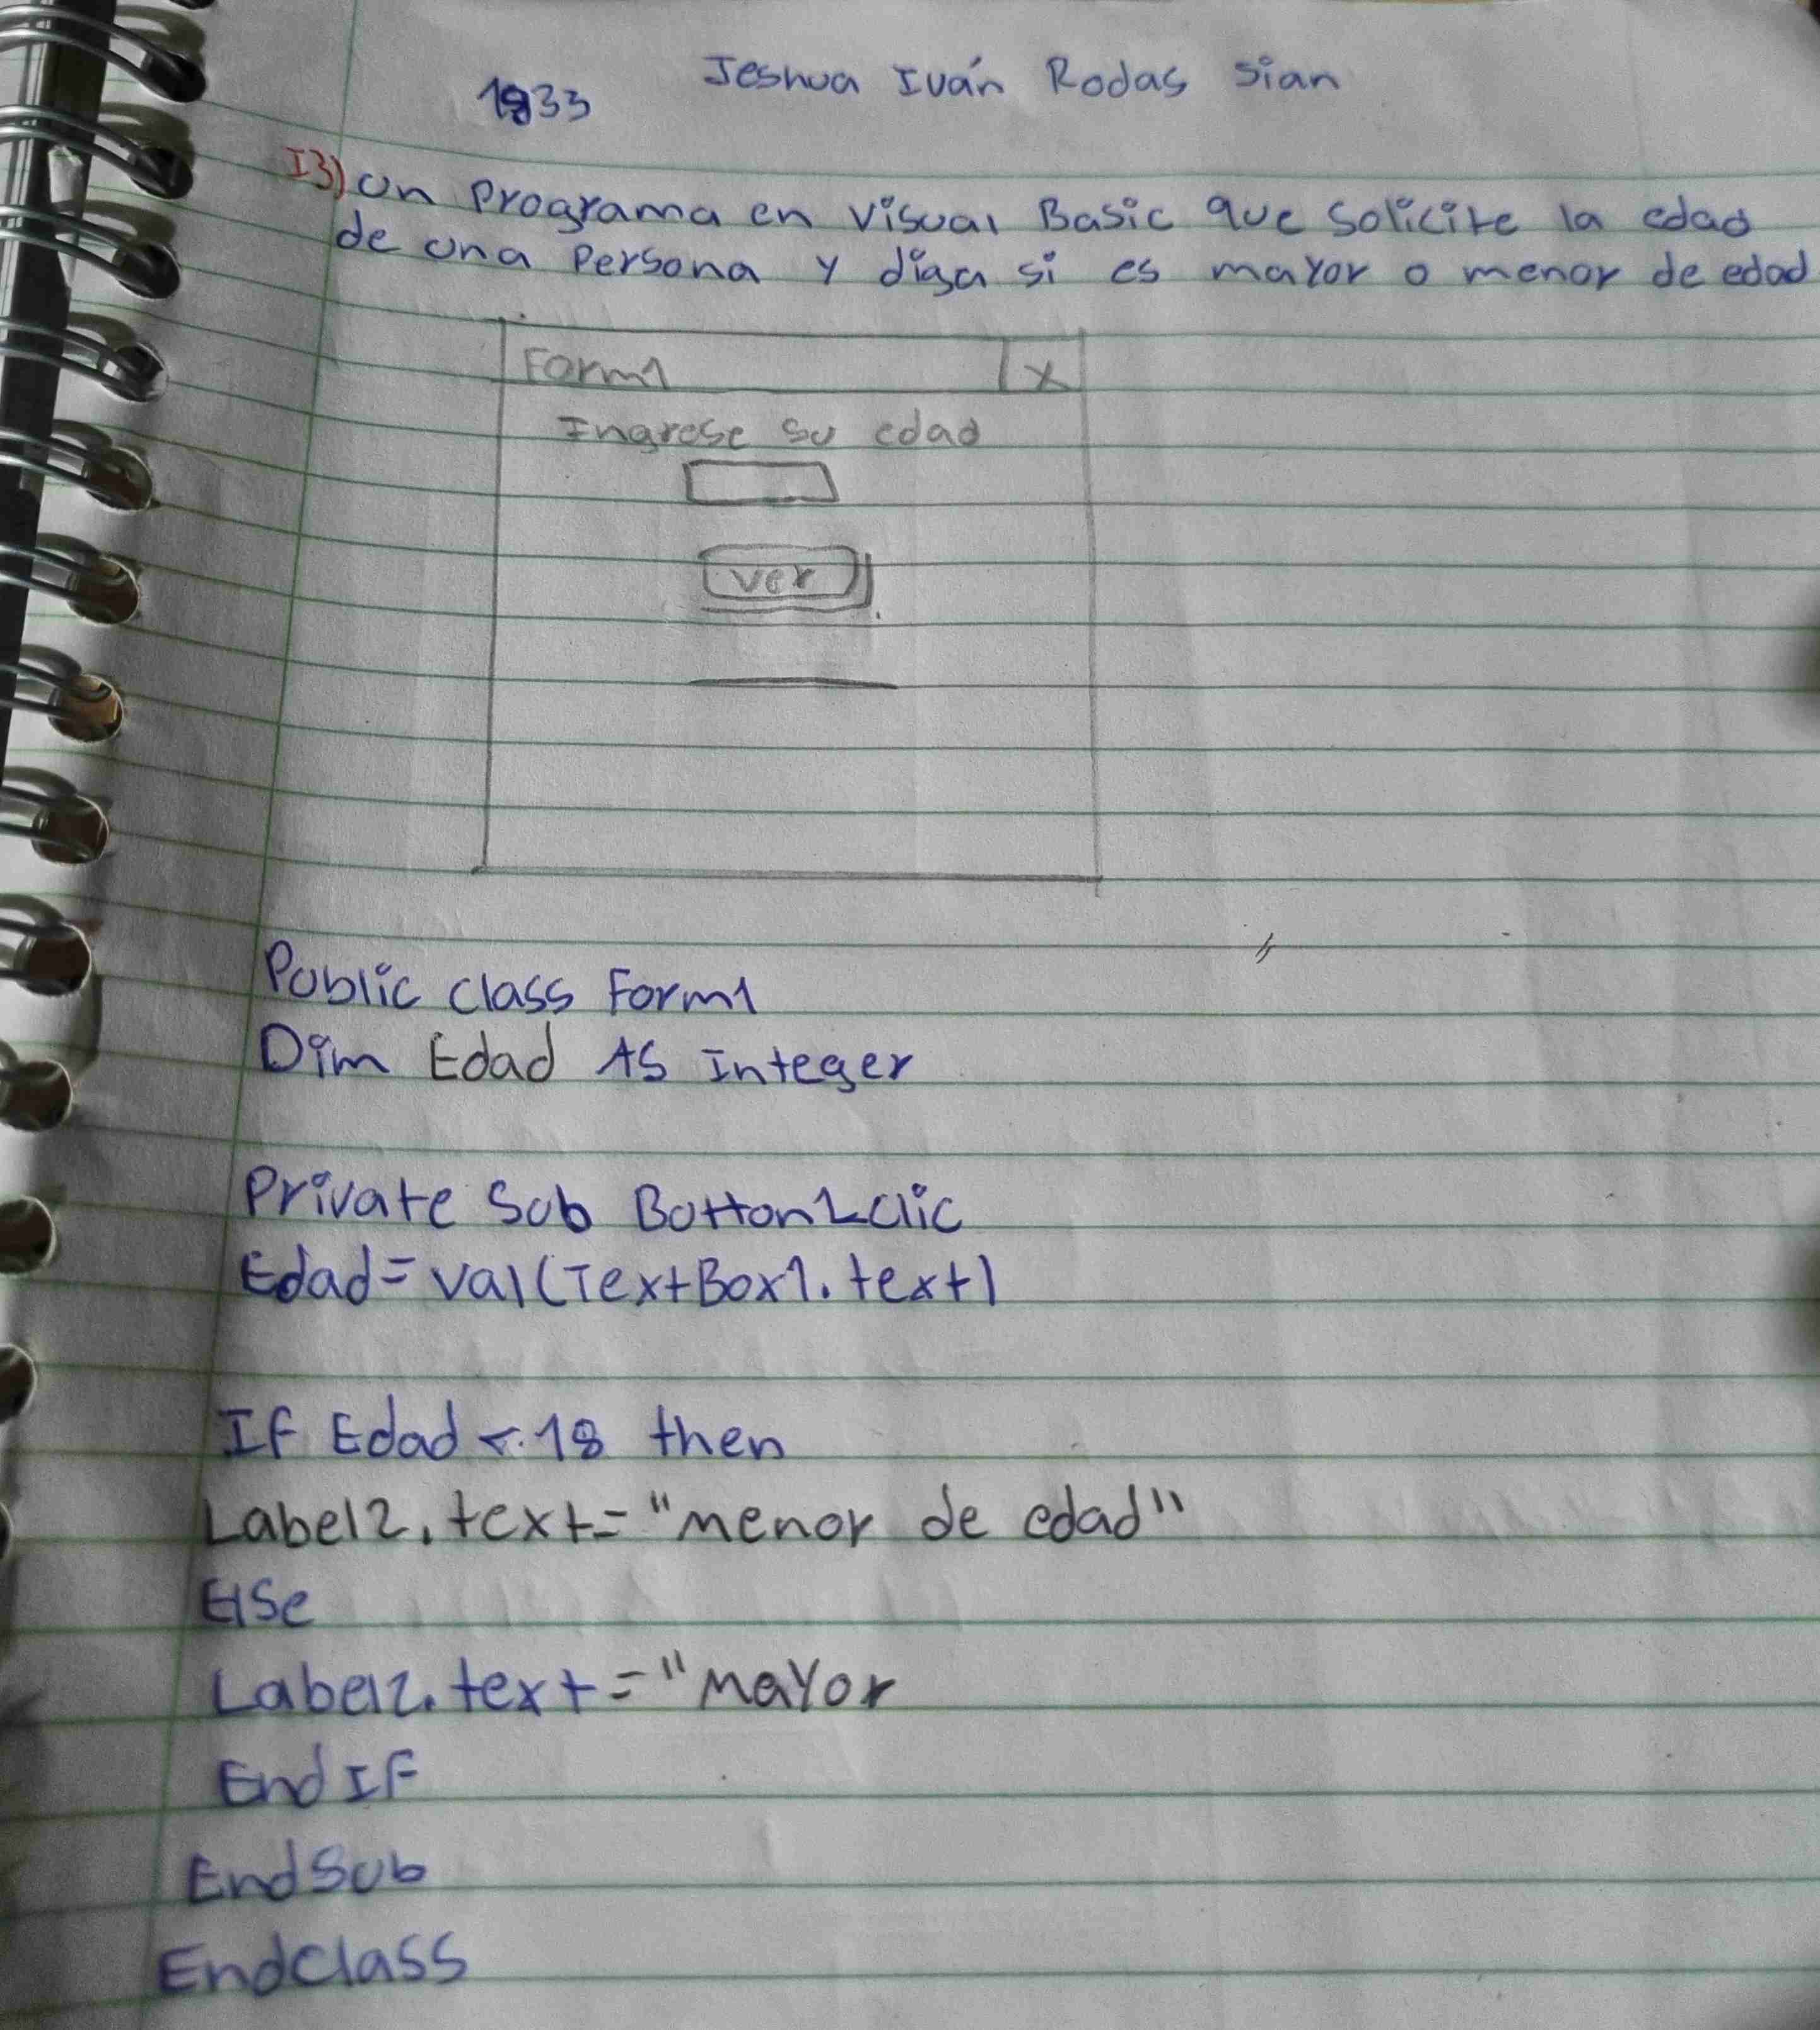 Jeshua Iván Rodas Sian
1933
I3) Un Programa en Visual Basic que solicite la edad
de una Persona y diga si es mayor o menor de edad
Form1 X
Ingrese su edad
ver
Public class Form1
Dim Edad As Integer
Private Sub Button1_clic
Edad=val(TextBox1.text)
If Edad < 18 then
Label2.text="menor de edad"
Else
Label2.text="Mayor
End IF
End Sub
End class